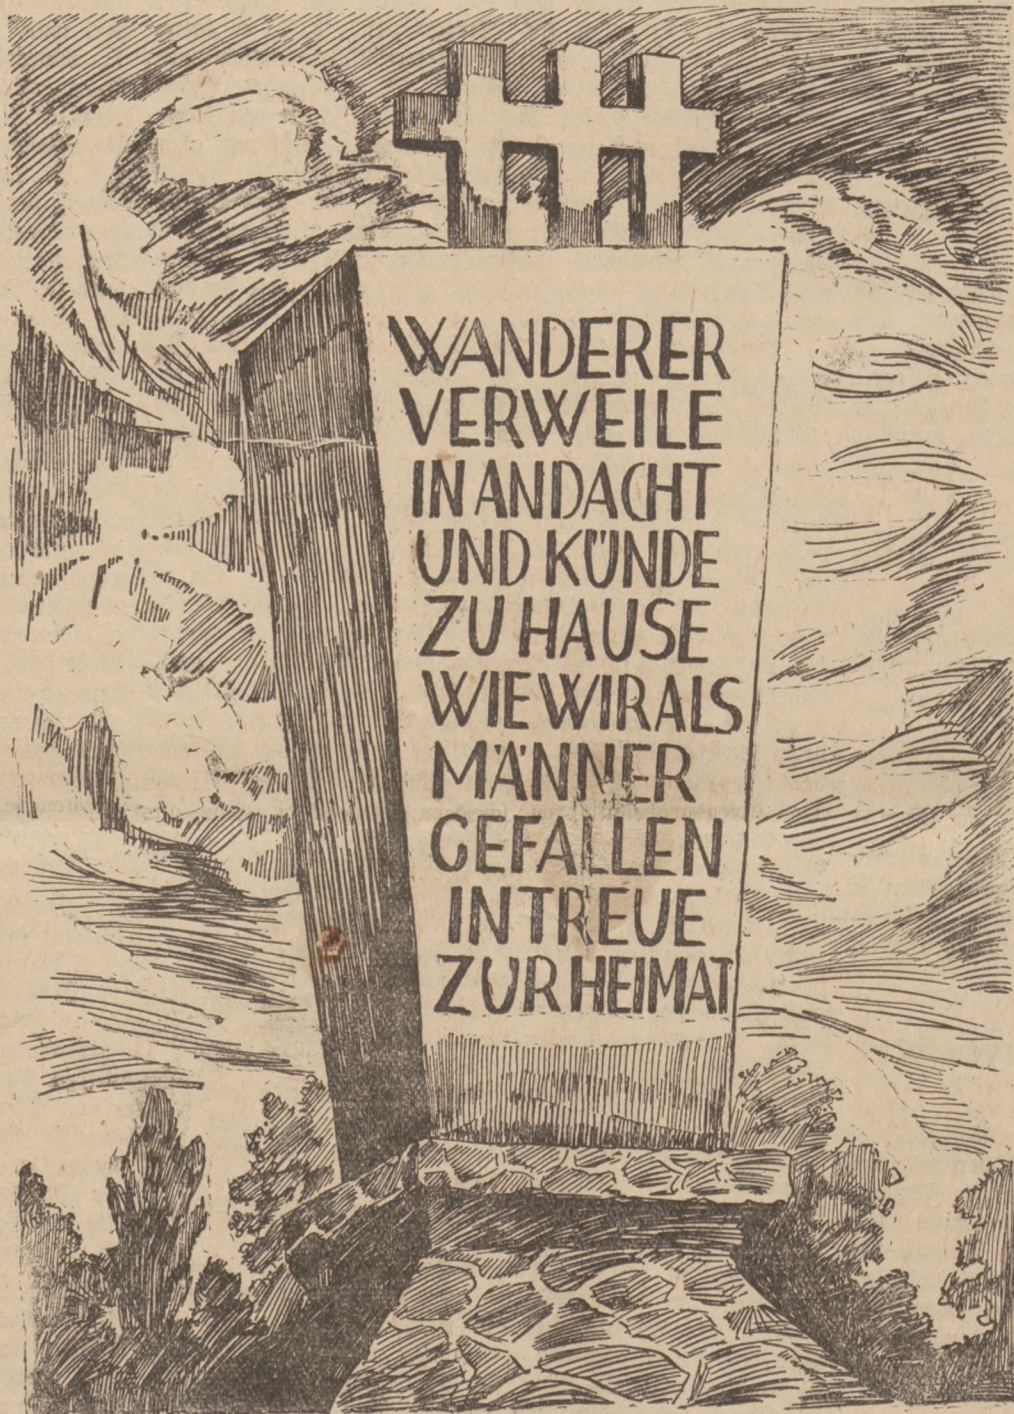 WANDERER
VERWEILE
IN ANDACHT
UND KÜNDE
ZU HAUSE
WIE WIR ALS
MÄNNER
GEFALLEN
IN TREUE
ZUR HEIMAT